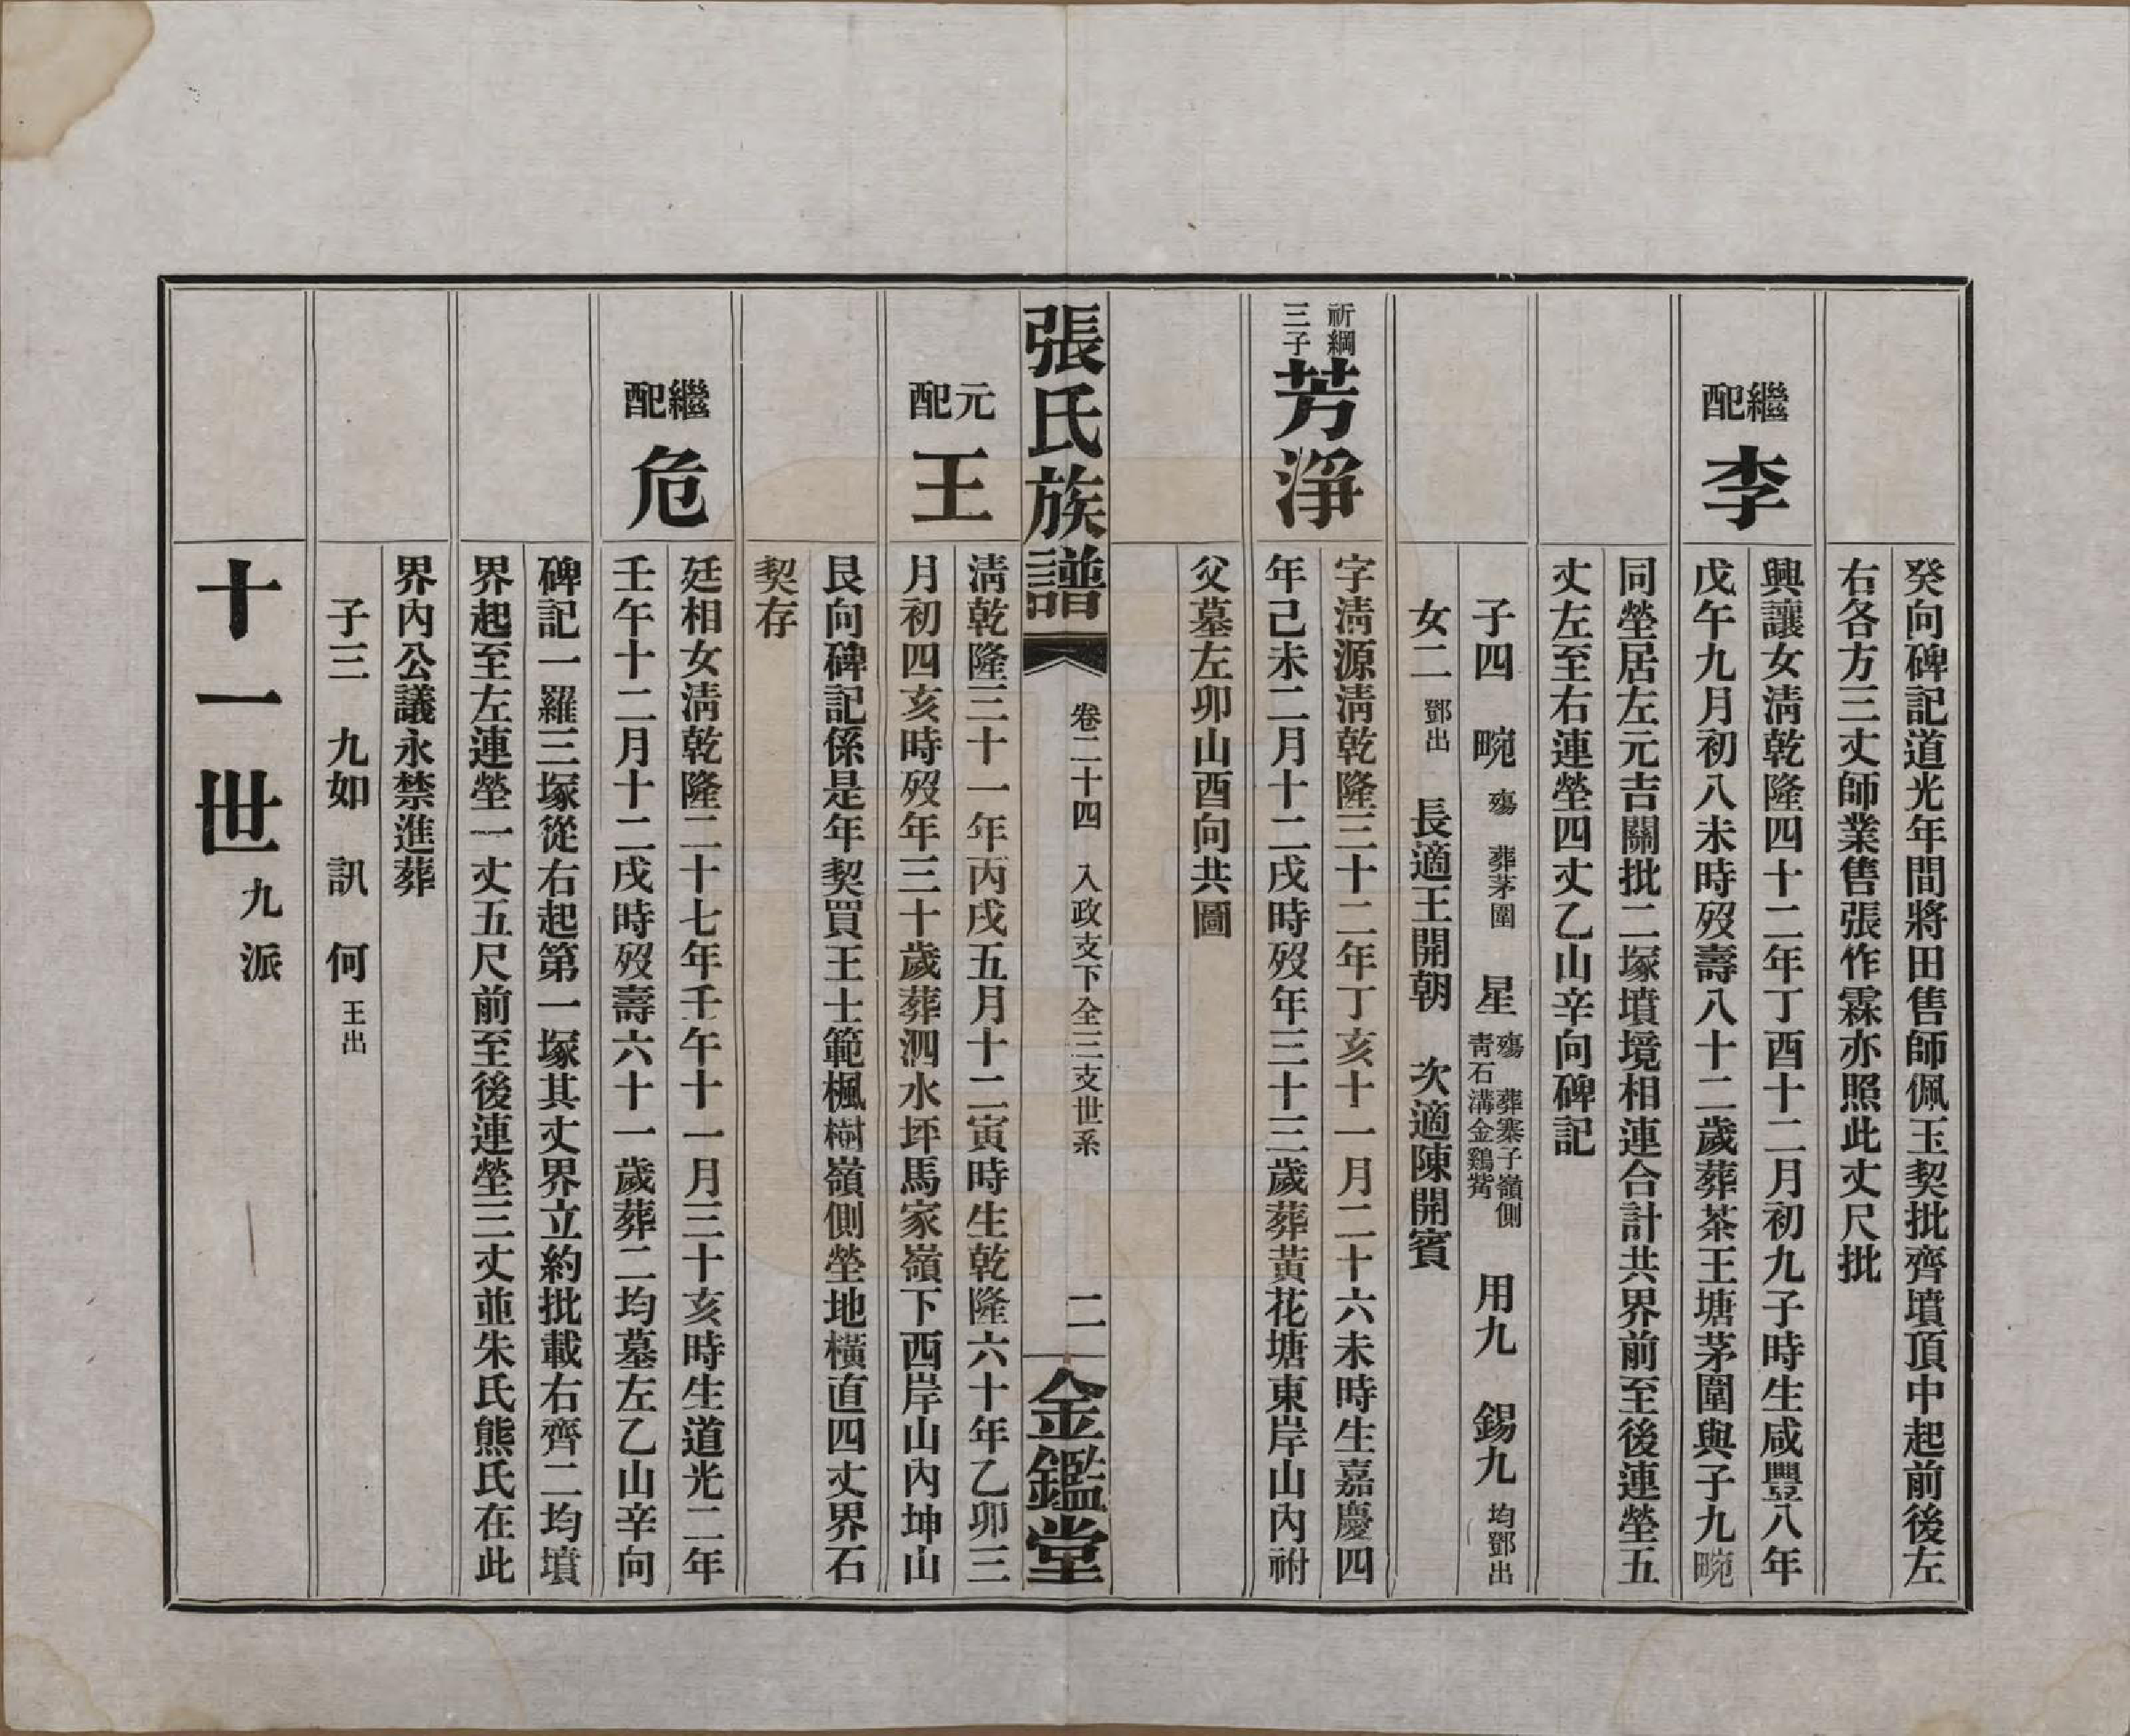 癸向碑記道光年間將田售師佩玉契批齊墳頂中起前後左
右各方三丈師業售張作霖亦照此丈尺批
繼配
李
興讓女淸乾隆四十二年丁酉十二月初九子時生咸豐八年
戊午九月初八未時歿壽八十二歲葬茶王塘茅圍與子九畹
同塋居左元吉關批二塚墳境相連合計共界前至後連塋五
丈左至右連塋四丈乙山辛向碑記
子四 畹 殤 葬茅圍 星 殤 葬寨子嶺側靑石溝金鷄嘴 用九 錫九 均鄧出
女二 鄧出 長適王開朝 次適陳開賓
祈綱三子
芳淨
字淸源淸乾隆三十二年丁亥十一月二十六未時生嘉慶四
年己未二月十二戌時歿年三十三歲葬黃花塘東岸山內祔
父墓左卯山酉向共圖
張氏族譜 卷二十四 入政支下全三支世系 二 金鑑堂
元配
王
淸乾隆三十一年丙戌五月十二寅時生乾隆六十年乙卯三
月初四亥時歿年三十歲葬泗水坪馬家嶺下西岸山內坤山
艮向碑記係是年契買王士範楓樹嶺側塋地橫直四丈界石
契存
繼配
危
廷相女淸乾隆二十七年壬午十一月三十亥時生道光二年
壬午十二月十二戌時歿壽六十一歲葬二均墓左乙山辛向
碑記一羅三塚從右起第一塚其丈界立約批載右齊二均墳
界起至左連塋一丈五尺前至後連塋三丈並朱氏熊氏在此
界內公議永禁進葬
子三 九如 訊 何 王出
十一世 九派